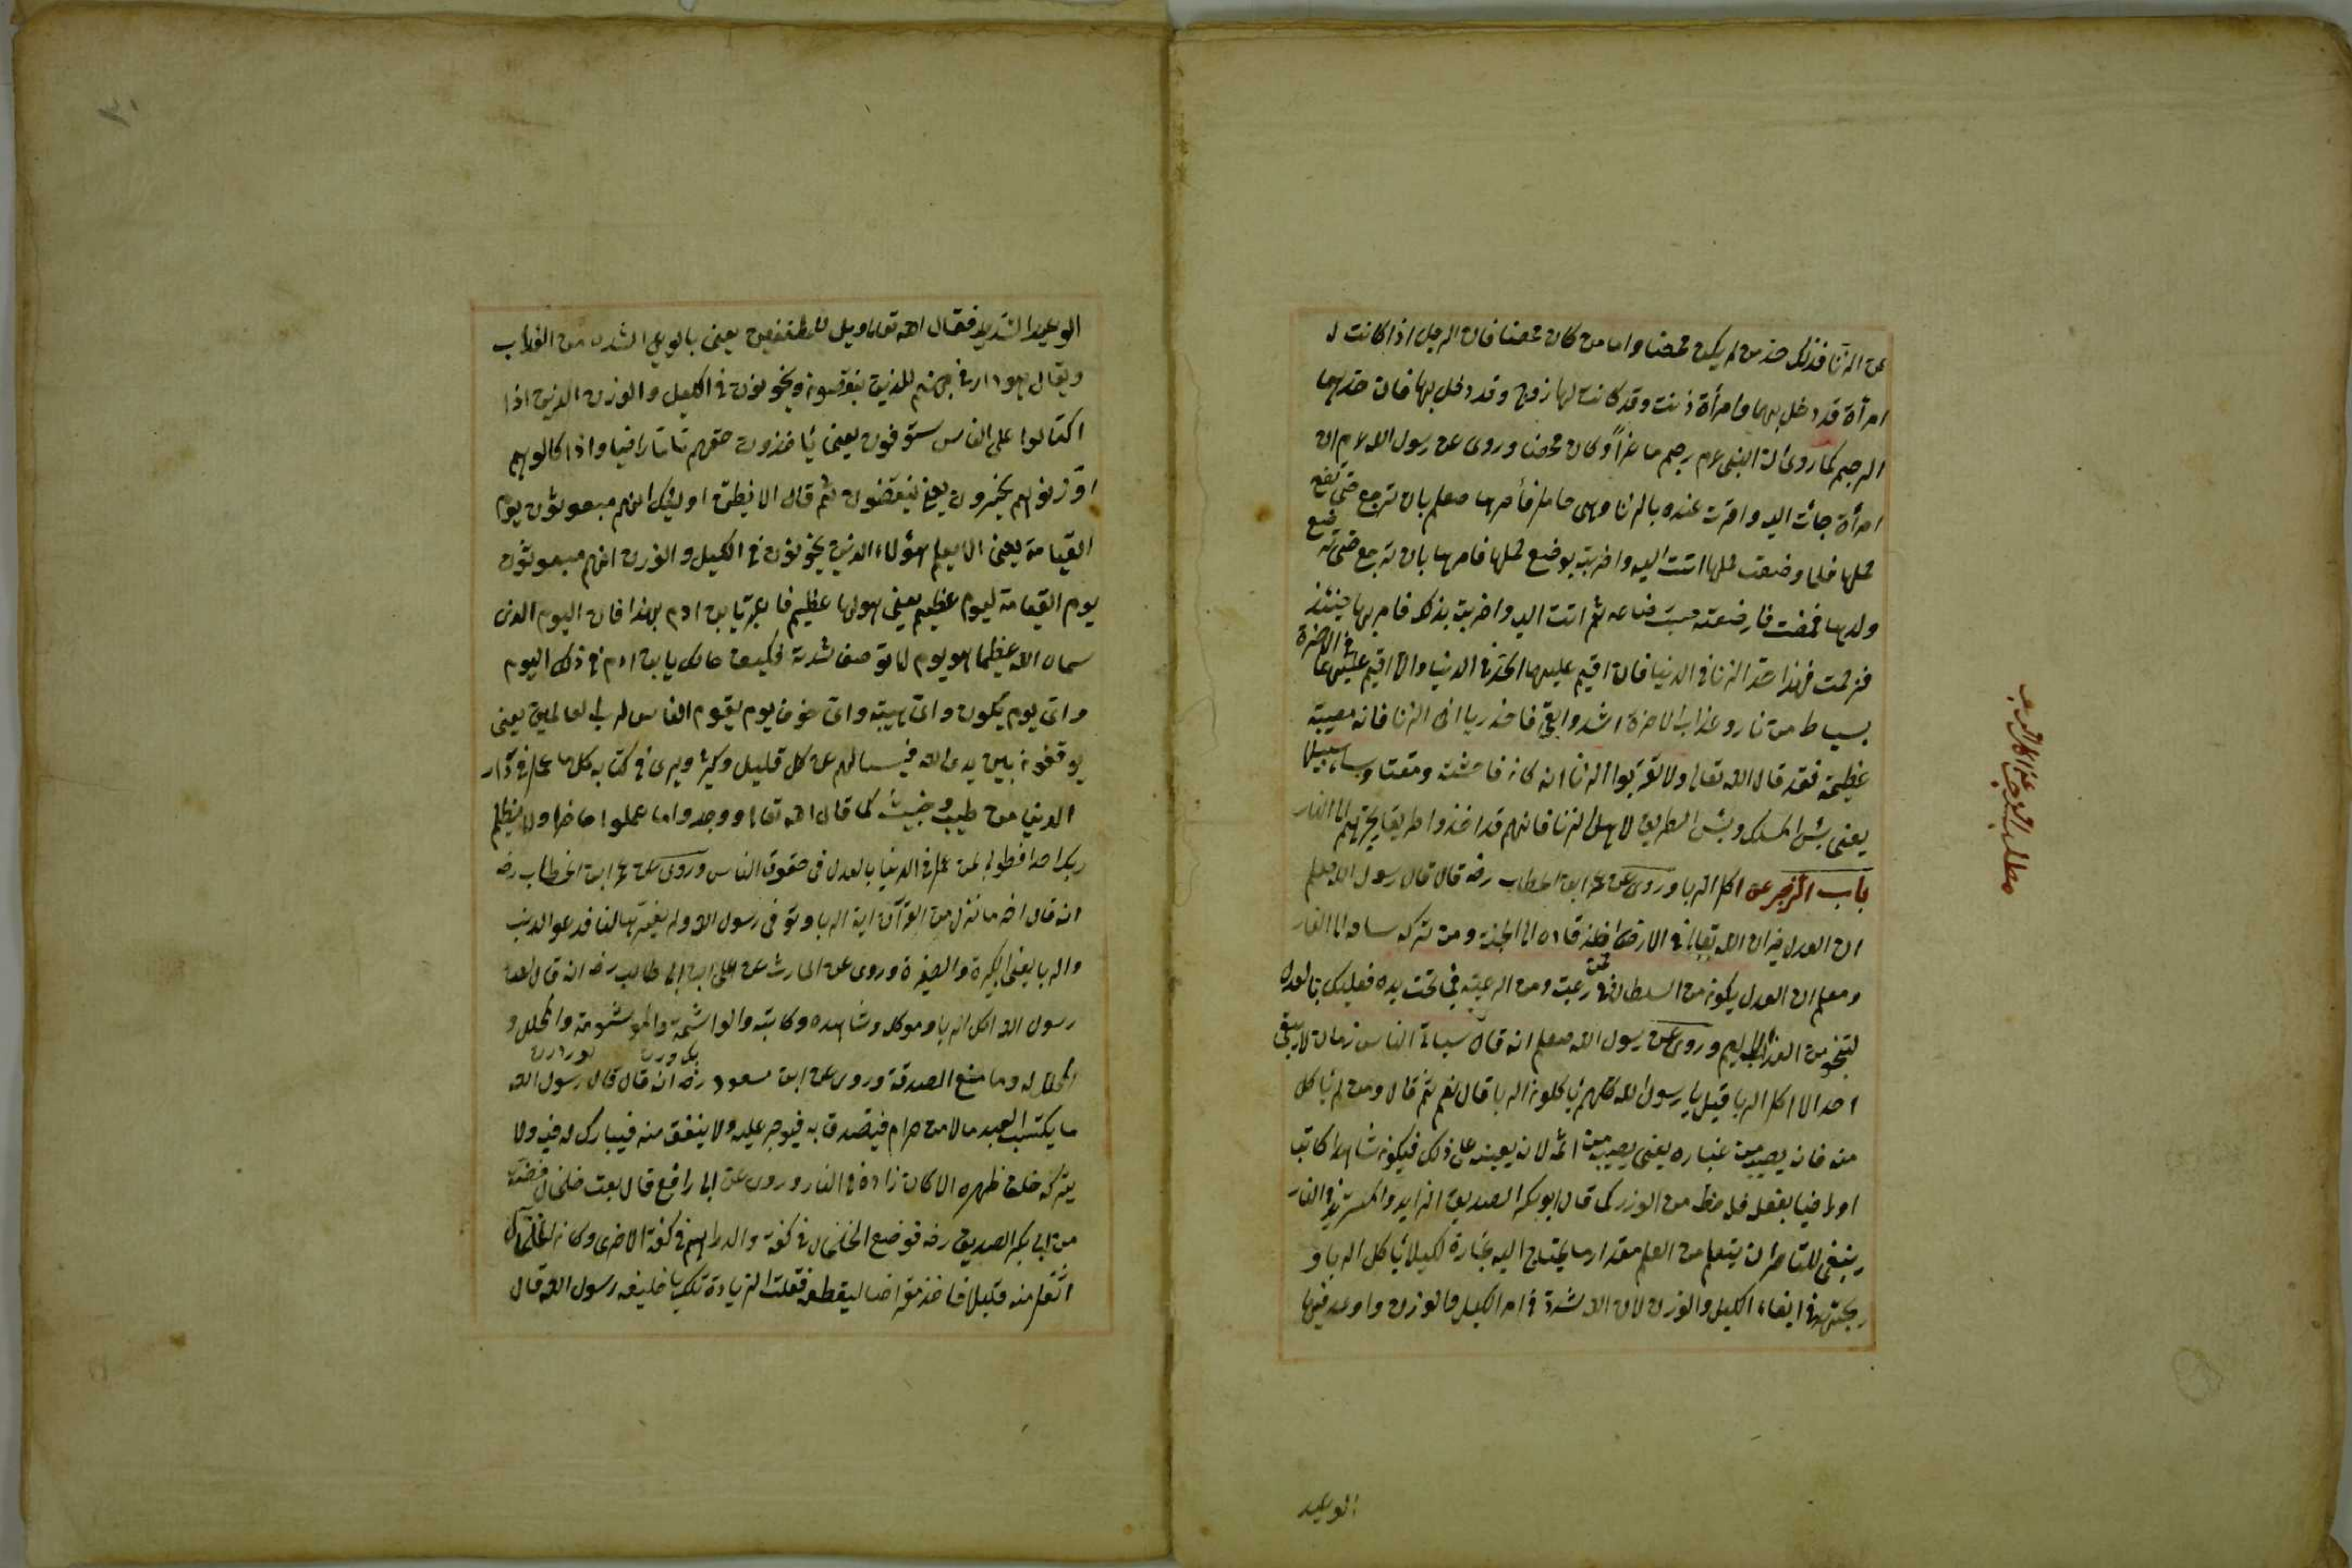 عن الزنا فذلك حد من لم يكن محصنا واما من كان محصنا فان الرجل اذا كانت له
امرأة قد دخل بها وامرأة زنت وقد كانت لها زوج وقد دخل بها فان حدهما
الرجم كما روى ان النبى عم رجم ماعزاً وكان محصنا وروى عن رسول الله عم ان
امرأة جائت اليه واقرت عنده بالزنا وهى حامل فأمرها صلعم بان ترجع حتى تضع
حملها فلما وضعت حملها اتت اليه واخبرته بوضع حملها فامرها بان ترجع حتى ترضع
ولدها فمضت فارضعته ثم اتت اليه واخبرت بذلك فامر بها حينئذ
فرجمت فهذا حد الزنا فى الدنيا فان اقيم عليهما الحد فى الدنيا والا اقيم عليهما فى الاخرة
بسياط من نار وعذاب الاخرة اشد وابقى فاحذر يا اخى الزنا فانه معصية
عظيمة فقد قال الله تعالى ولا تقربوا الزنا انه كان فاحشة ومقتا وساء سبيلا
يعنى بئس المسلك وبئس الطريق لاهل الزنا فانهم قد اخذوا طريقا يجرتهم الى النار
باب الزجر عن اكل الربا وروى عن عمر ابن الخطاب رضه قال قال رسول الله صلعم
ان العدل ميزان الله تعالى فى الارض فمن اخذه قاده الى الجنة ومن تركه ساقه الى النار
ومعلم ان العدل يكون من السلطان فى رعيته ومن الرعية فى تحت يده فعليك بالعدل
لتنجو من العذاب الاليم وروى عن رسول الله صلعم انه قال سيأتى الناس زمان لا يبقى
احد الا اكل الربا قيل يا رسول الله كلهم يأكلون الربا قال نعم ثم قال ومن لم يأكل
منه فانه يصيب من غباره يعنى يصيب من اثمه لانه يعينه على ذلك فيكون شاهدا او كاتبا
او راضيا بفعل فله حظ من الوزر كما قال ابو بكر الصديق الزايد والمستزيد فى النار
وينبغى للتاجر ان يتعلم من العلم مقدار ما يحتاج اليه تجارة لكيلا يأكل الربا و
يجتهد فى ايفاء الكيل والوزن لان الله شدد فى امر الكيل والوزن واوعد فيها
الوعيد
الوعيد الشديد فقال الله تعالى ويل للمطففين يعنى بالويل الشدة من العذاب
ويقال هو واد فى جهنم للذين ينقصون ويخونون فى الكيل والوزن الذين اذا
اكتالوا على الناس يستوفون يعنى يأخذون حقهم تاما وافيا واذا كالوهم
او زنوهم يخسرون يعنى ينقصون ثم قال الا يظن اولئك انهم مبعوثون يوم
القيامة يعنى الا يعلم هؤلاء الذين يخونون فى الكيل والوزن انهم مبعوثون
يوم القيامة ليوم عظيم يعنى هولها عظيم فاعبر يا ابن ادم بهذا فان اليوم الذى
سماه الله عظيما هو يوم لا توصف شدته فكيف حالك يا ابن ادم فى ذلك اليوم
واى يوم يكون واى هيبة واى خوف يوم يقوم الناس لرب العالمين يعنى
يوقفون بين يدى الله فيسالهم عن كل قليل وكثير ويرى فى كتابه كل ما عمل فى دار
الدنيا من طيب وخبيث كما قال الله تعالى ووجدوا ما عملوا حاضرا ولا يظلم
ربك احدا فطوبى لمن عمل فى الدنيا بالعدل فى حقوق الناس وروى عن عمر ابن الخطاب رضه
انه قال اخر ما نزل من القرآن اية الربا وتوفى رسول الله ولم يفسرها لنا فدعوا الريب
والربا يعنى الكبيرة والصغيرة وروى عن الحارث عن على ابن ابى طالب رضه انه قال لعن
رسول الله اكل الربا وموكله وشاهده وكاتبه والواشمة والموشومة والمحلل و
المحلل له وما منع الصدقة وروى عن ابن مسعود رضه انه قال قال رسول الله
ما يكتسب العبد مالا من حرام فيتصدق به فيوجر عليه ولا ينفق منه فيبارك له فيه ولا
يتركه خلف ظهره الا كان زاده فى النار وروى عن ابى رافع قال بعت خلخال فضة
من ابى بكر الصديق رضه فوضع الخلخال فى كفة والدراهم فى كفة الاخرى وكان الخلخال
اثقل منه قليلا فاخذ مقراضا ليقطعه فقلت الزيادة تلك يا خليفة رسول الله قال